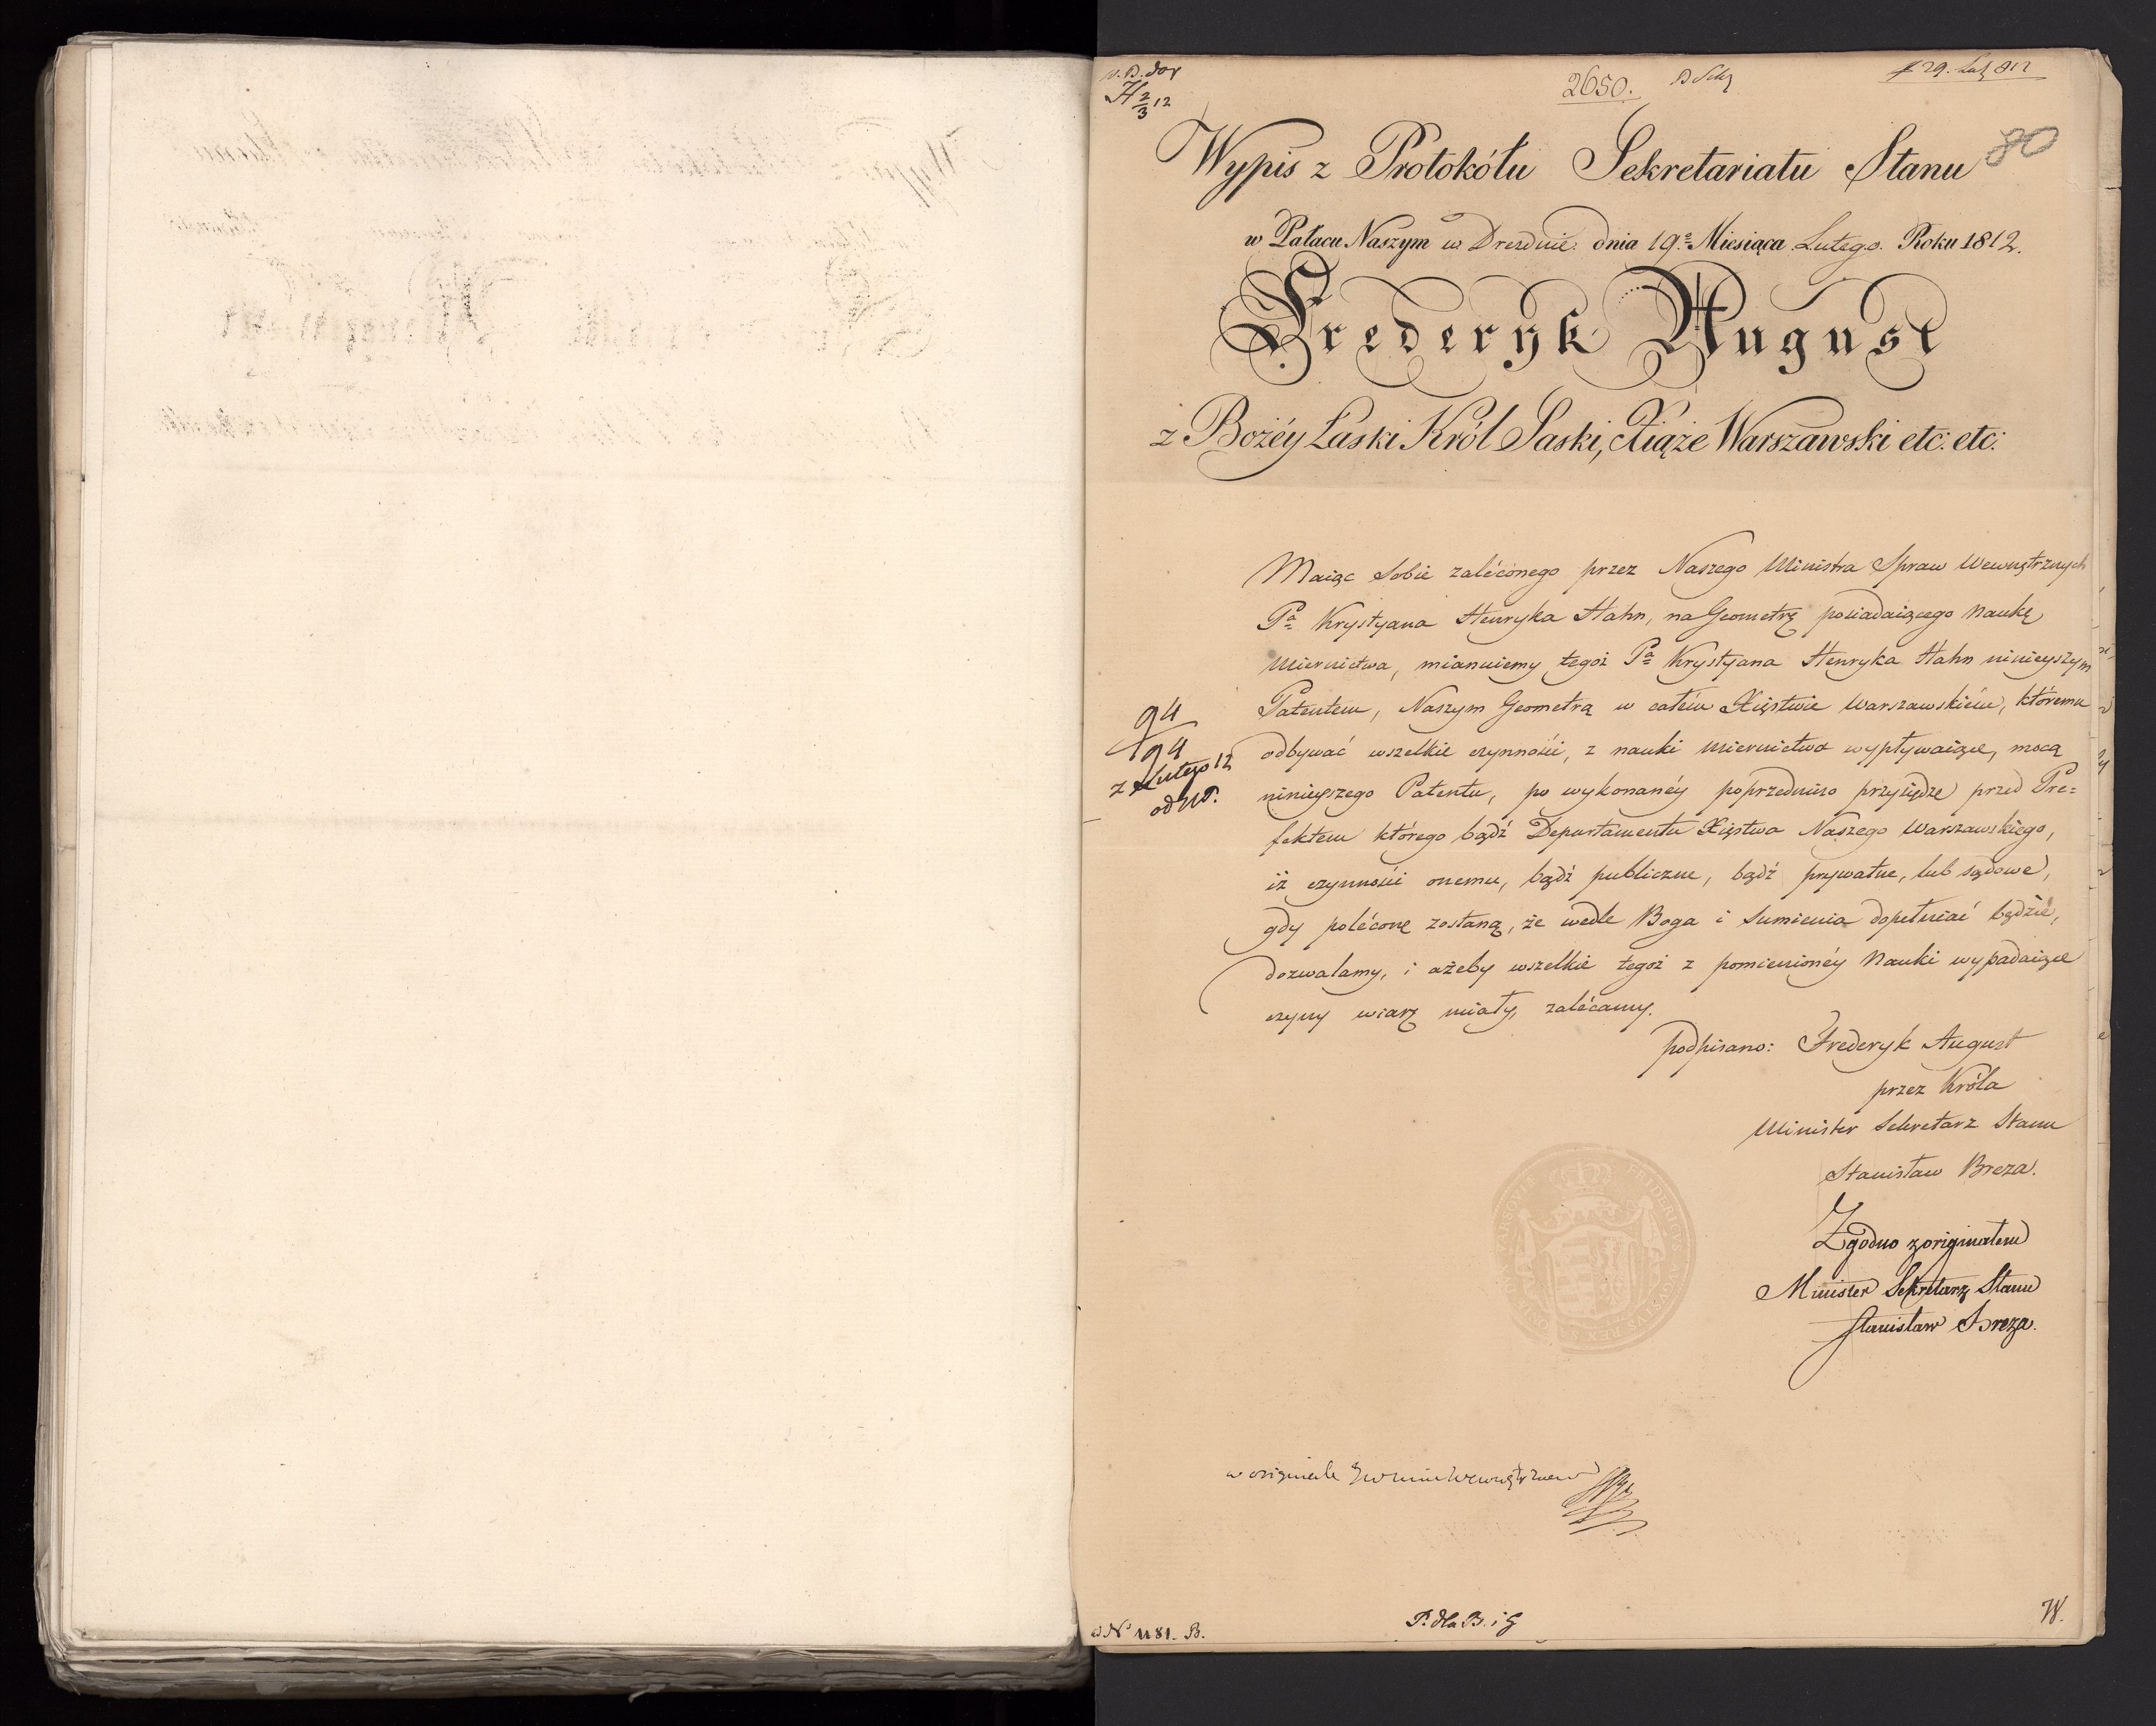 2650.
29. Lut 812
H 2/3 12
80
Wypis z Protokółu Sekretariatu Stanu
w Pałacu Naszym w Dreznie. dnia 19.º Miesiąca Lutego. Roku 1812.
Frederyk August
z Bożéy Łaski Król Saski, Xiąże Warszawski etc: etc:
Maiąc sobie zaléconego przez Naszego Ministra Spraw Wewnętrznych
Pª Krystyana Henryka Hahn, na Geometrę posiadaiącego Naukę
Miernictwa, mianuiemy tegoż Pª Krystyana Henryka Hahn ninieyszym
Patentem, Naszym Geometrą w całém Xięstwie Warszawskiém, któremu
odbywać wszelkie czynności, z nauki Miernictwa wypływaiące, mocą
ninieyszego Patentu, po wykonanéy poprzedniczo przysiędze przed Pre=
fektem którego bądź Departamentu Xięstwa Naszego Warszawskiego,
iż czynności onemu, bądź publiczne, bądź prywatne, lub sądowe,
gdy poléconę zostaną, że wedle Boga i Sumienia dopełniać będzie,
dozwalamy, i ażeby wszelkie tegoż z pomienionéy Nauki wypadaiące
czyny wiarę miały, zalécamy.
94
94
z Lutego 12
podpisano: Frederyk August
przez Króla
Minister Sekretarz Stanu
Stanisław Breza.
Zgodno z originałem
Minister Sekretarz Stanu
Stanisław Breza.
w originale
Nº 1181. B.
P. dla B. i G
W.